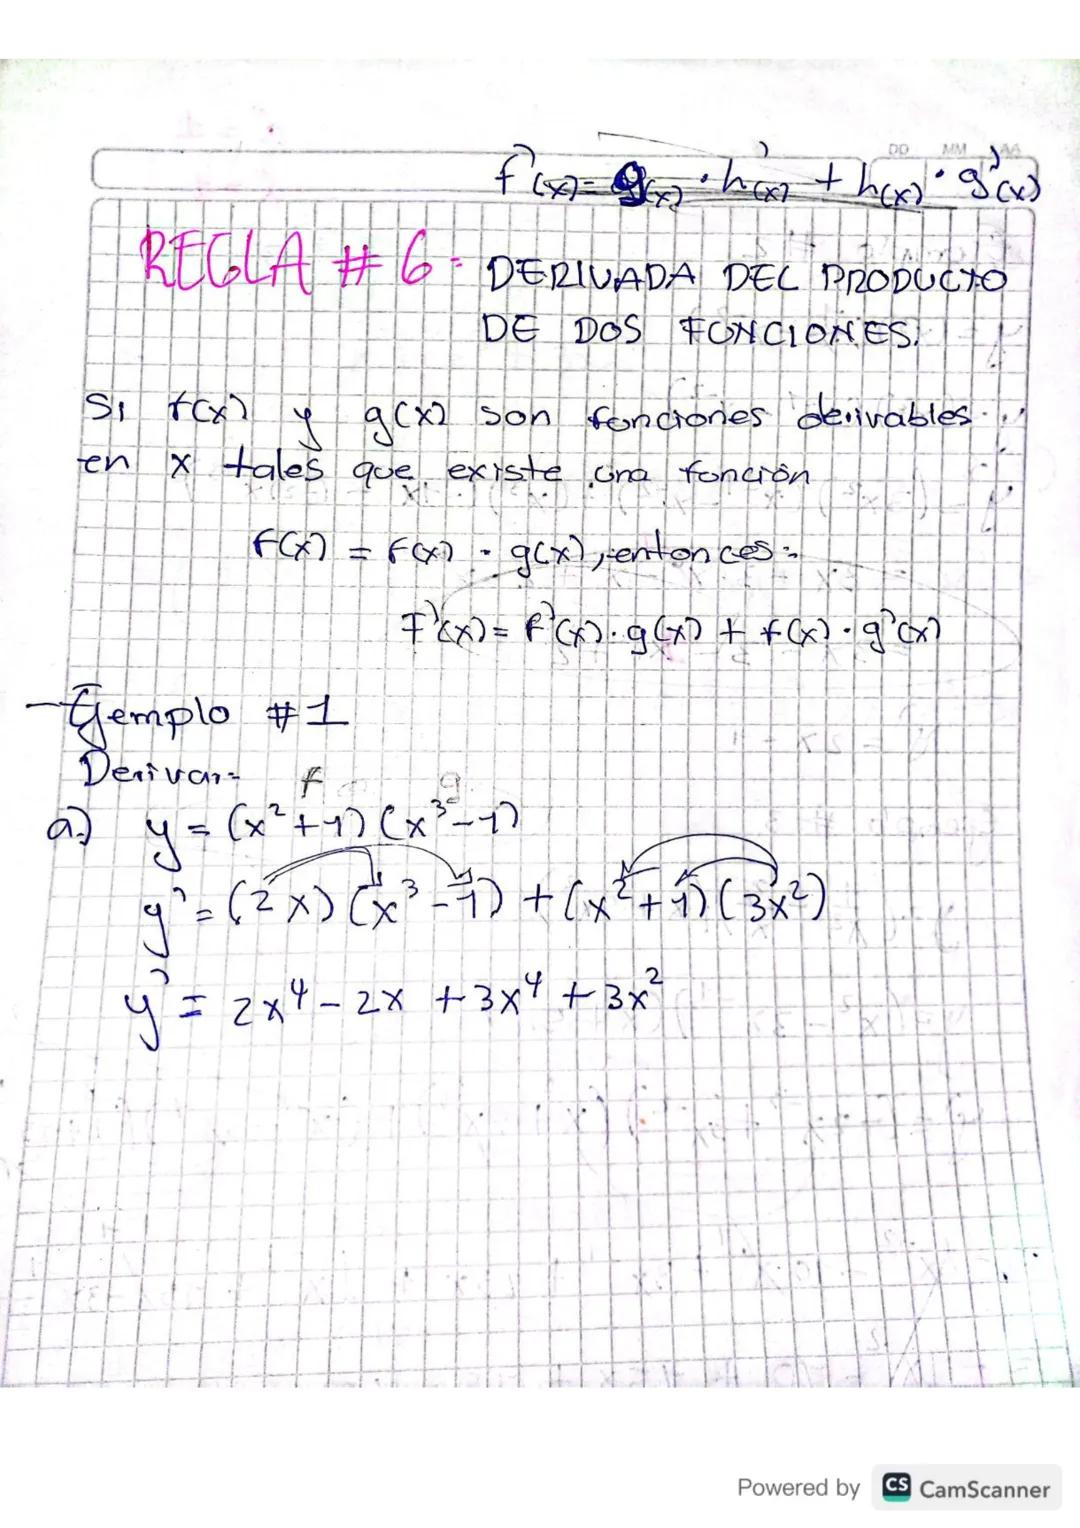 DD MM AA
f'(x) = g(x) · h'(x) + h(x) · g'(x)
REGLA # 6 - DERIVADA DEL PRODUCTO
DE DOS FUNCIONES.
Si f(x) y g(x) son funciones derivables
en x tales que existe una función
F(x) = f(x) · g(x), entonces:
F'(x) = f'(x) · g(x) + f(x) · g'(x)
- Ejemplo #1
Derivar:
f g
a) y = (x² + 1) (x³ - 1)
y' = (2x) (x³ - 1) + (x² + 1) (3x²)
y' = 2x⁴ - 2x + 3x⁴ + 3x²
Powered by CS CamScanner